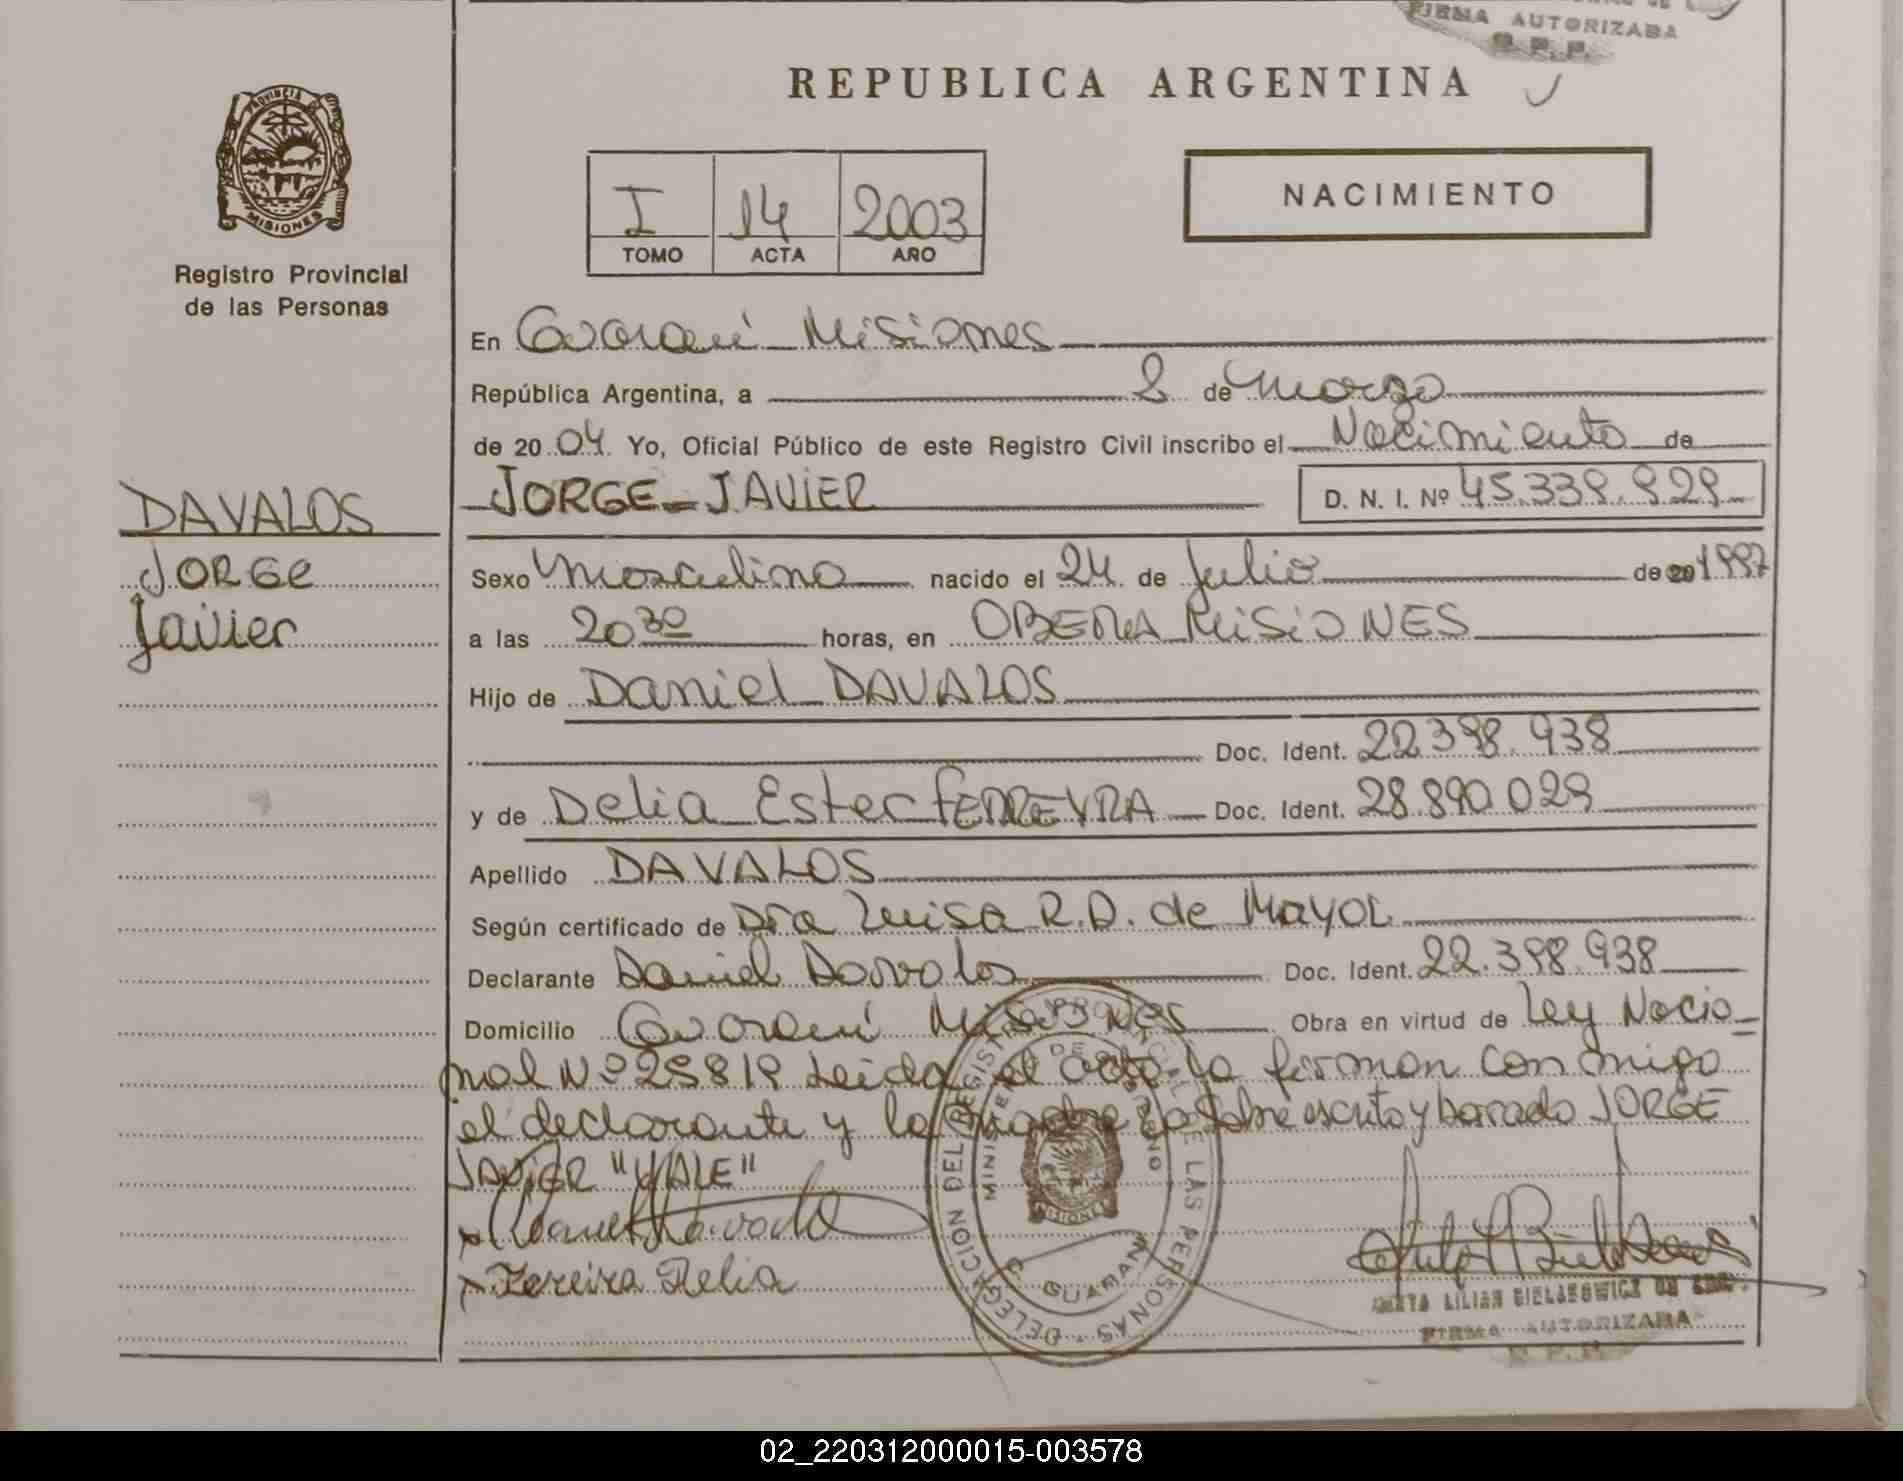 FIRMA AUTORIZADA
R. P. P.
REPUBLICA ARGENTINA
PROVINCIA DE
MISIONES
Registro Provincial
de las Personas
I 14 2003
TOMO ACTA AÑO
NACIMIENTO
En Guaraní Misiones
República Argentina, a 2 de Marzo
de 20 04 Yo, Oficial Público de este Registro Civil inscribo el Nacimiento de
JORGE JAVIER D. N. I. Nº 45.339.929
DAVALOS
JORGE
Javier
Sexo Masculino nacido el 24 de Julio de 20 1997
a las 20 30 horas, en OBERA MISIONES
Hijo de Daniel DAVALOS
Doc. Ident. 22.398.938
y de Delia Ester FERREYRA Doc. Ident. 28.890.029
Apellido DAVALOS
Según certificado de Dra Luisa R.D. de Mayol
Declarante Daniel Davalos Doc. Ident. 22.398.938
Domicilio Guaraní Misiones Obra en virtud de Ley Nacio-
nal Nº 25819 Leida el acta la firman conmigo
el declarante y la madre Lo sobre escrito y borrado JORGE
JAVIER "VALE"
DELEGACION DEL REGISTRO PROVINCIAL DE LAS PERSONAS
MINISTERIO DE GOBIERNO
MISIONES
GUARANI
Fereira Delia
LILIAN BIELAKOWICZ DE
FIRMA AUTORIZADA
R. P. P.
02_220312000015-003578